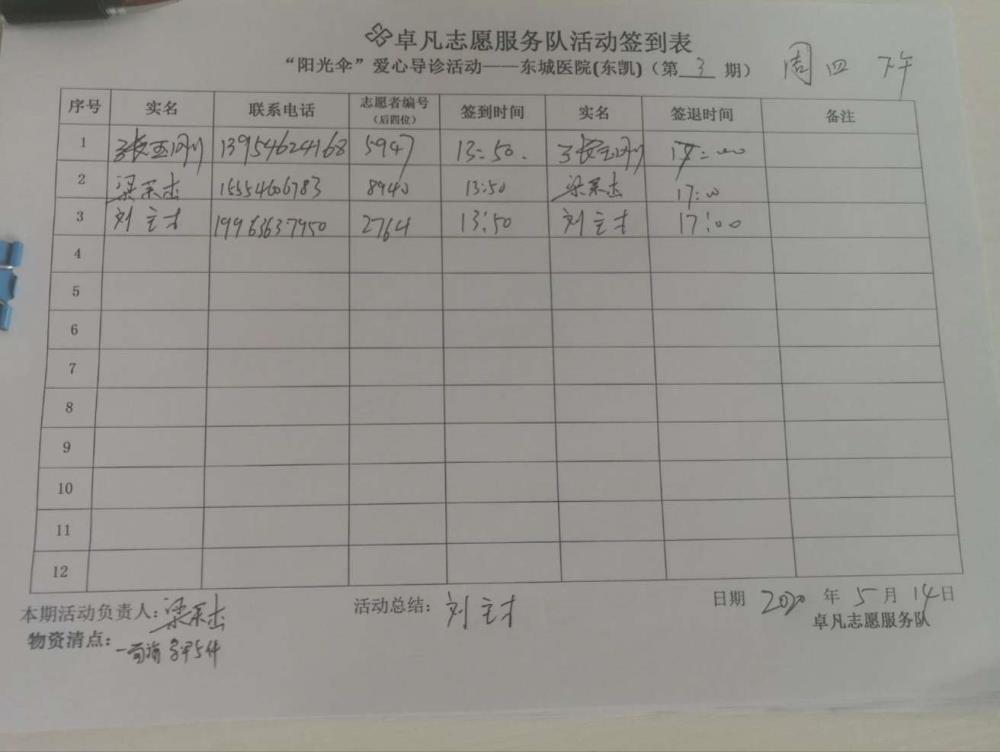 卓凡志愿服务队活动签到表
“阳光伞”爱心导诊活动——东城医院(东凯)(第 3 期) 周四 下午
序号 实名 联系电话 志愿者编号(后四位) 签到时间 实名 签退时间 备注
1 13954624168 5947 13:50. 17:00
2 15554606783 8940 13:50 17:00
3 刘主才 19963637950 2764 13:50 刘主才 17:00
4
5
6
7
8
9
10
11
12
本期活动负责人: 活动总结: 刘主才 日期 2020 年 5 月 14日
物资清点: 卓凡志愿服务队